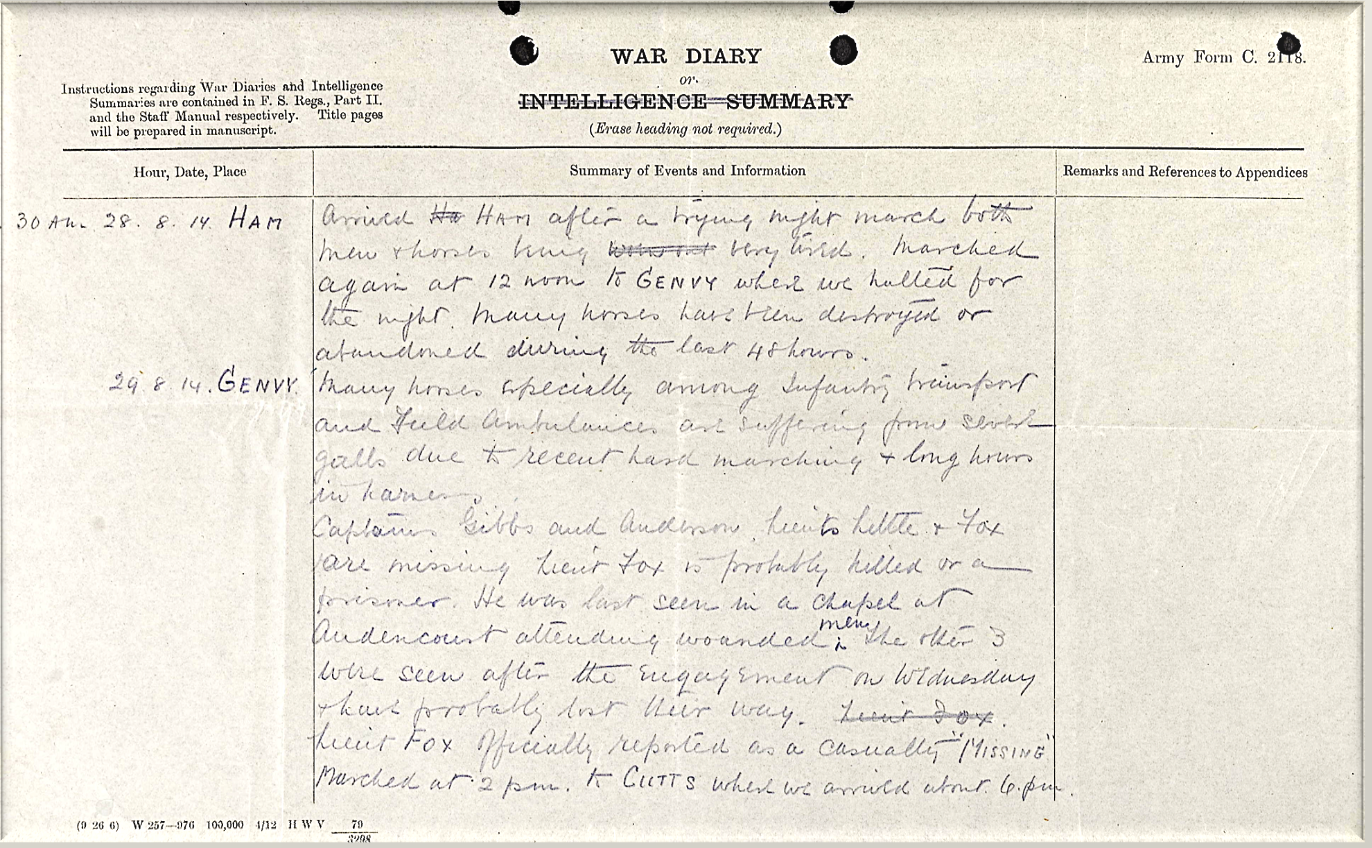 WAR DIARY
or
INTELLIGENCE SUMMARY
(Erase heading not required.)
Army Form C. 2118.
Instructions regarding War Diaries and Intelligence
Summaries are contained in F. S. Regs., Part II.
and the Staff Manual respectively. Title pages
will be prepared in manuscript.
Hour, Date, Place
Summary of Events and Information
Remarks and References to Appendices
30 AM. 28. 8. 14. HAM
Arrived Ha HAM after a trying night march both
men + horses being worn out very tired. Marched
again at 12 noon to GENVY where we halted for
the night. Many horses have been destroyed or
abandoned during the last 48 hours.
29. 8. 14. GENVY.
Many horses especially among Infantry transport
and Field Ambulances are suffering from severe
galls due to recent hard marching + long hours
in harness.
Captains Gibbs and Anderson, Lieuts Little + Fox
are missing Lieut Fox is probably killed or a
prisoner. He was last seen in a chapel at
Audencourt attending wounded men. The other 3
were seen after the Engagement on Wednesday
+ have probably lost their way. Lieut Fox.
Lieut Fox Officially reported as a casualty "MISSING"
Marched at 2 pm. to CUTTS where we arrived about 6. pm.
(9 26 6) W 257—976 100,000 4/12 H W V 79
3298